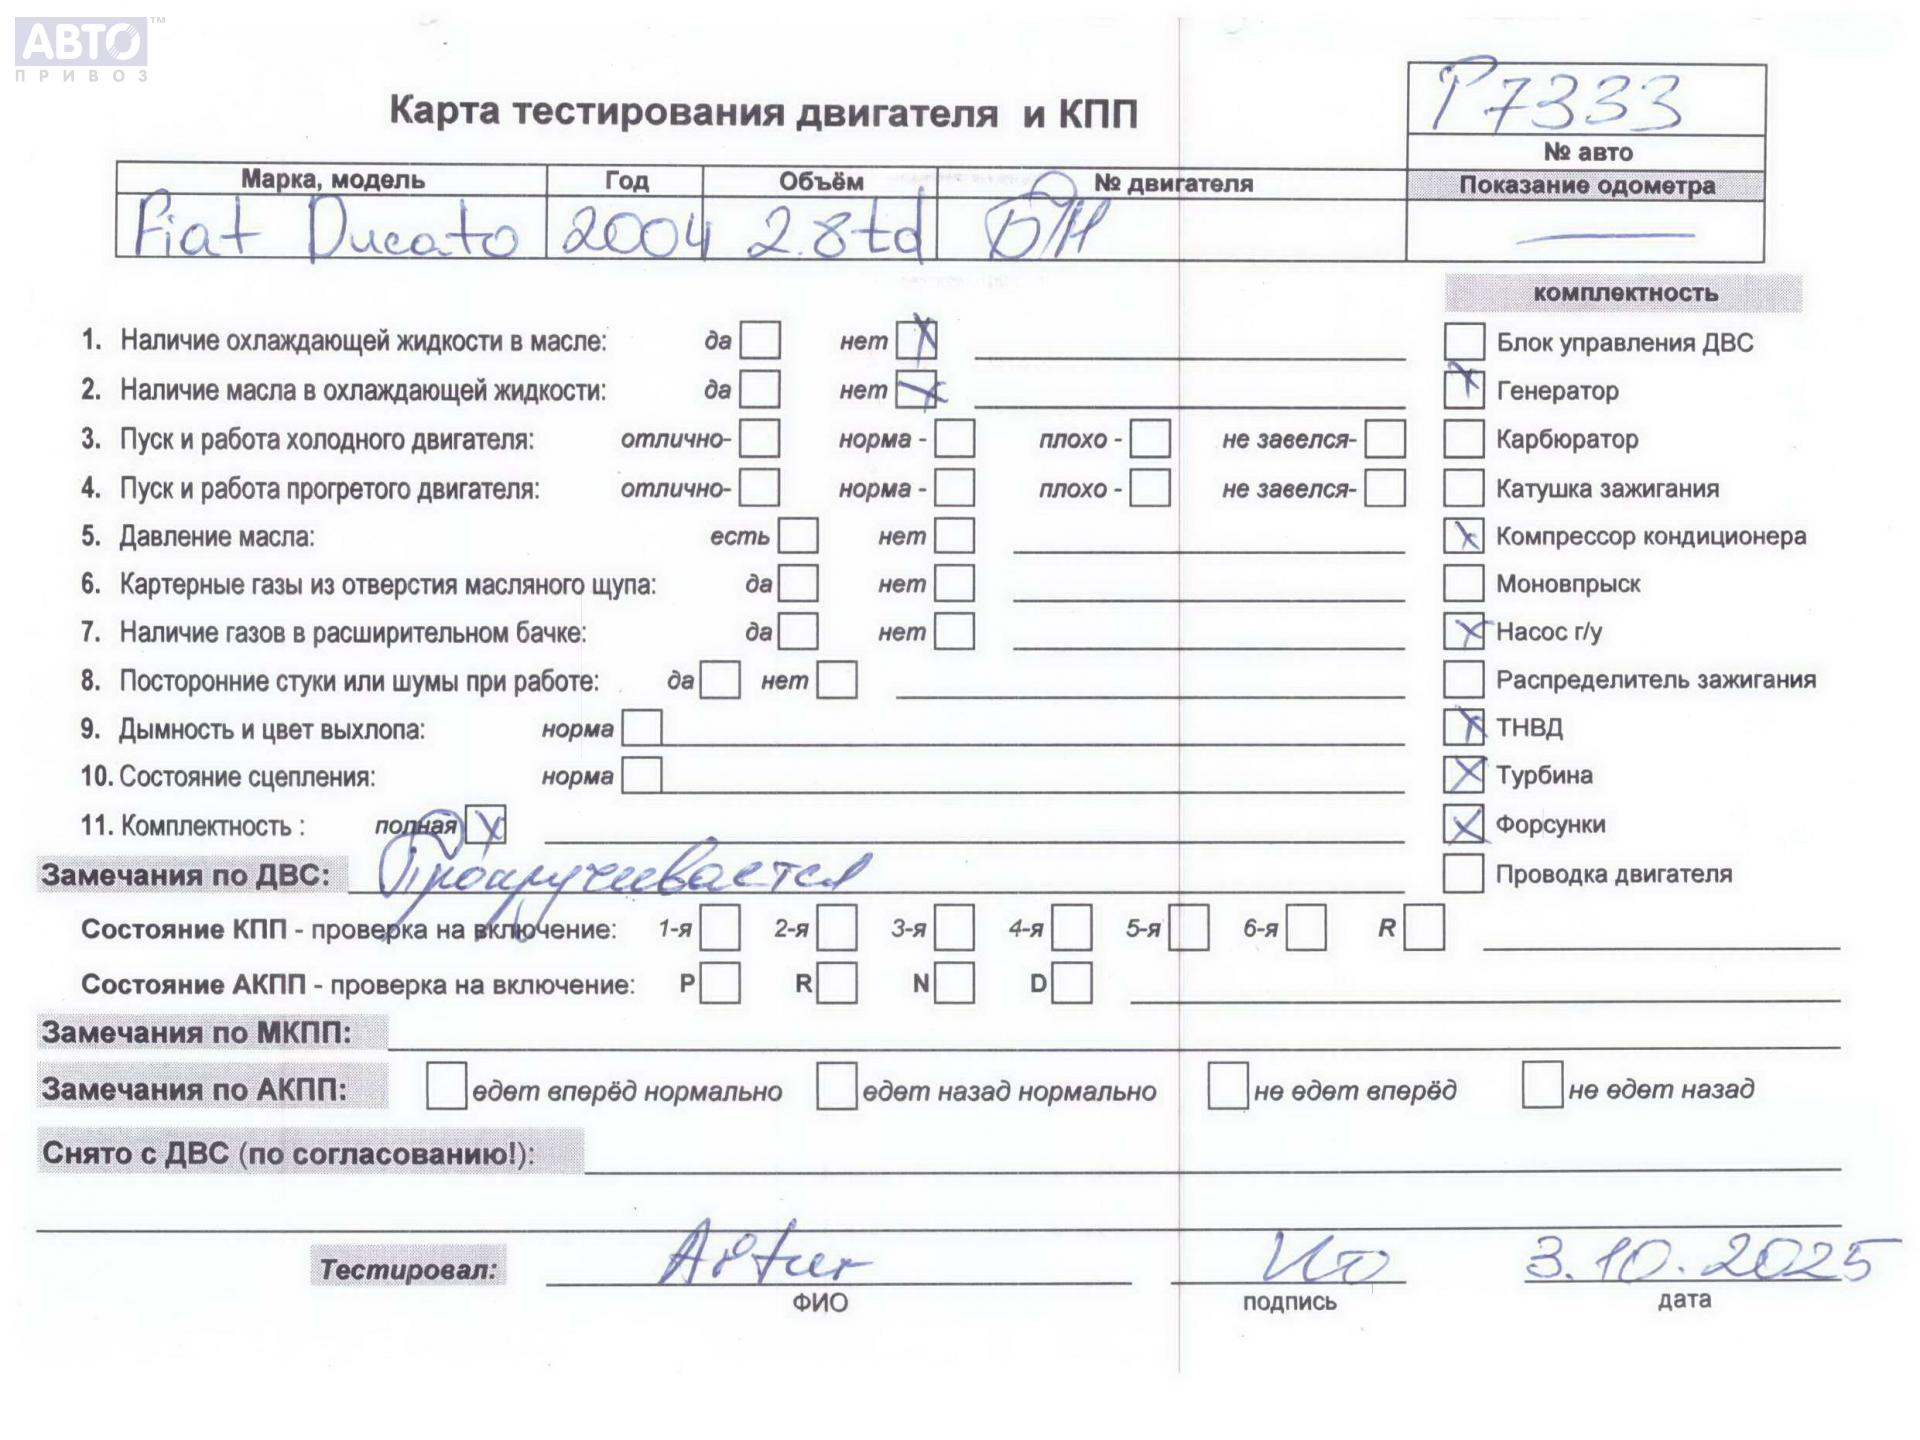 АВТО™
ПРИВОЗ
Р7333
Карта тестирования двигателя и КПП
№ авто
Марка, модель Год Объём № двигателя Показание одометра
Fiat Ducato 2004 2.8td Б/Н
комплектность
1. Наличие охлаждающей жидкости в масле: да нет X Блок управления ДВС
2. Наличие масла в охлаждающей жидкости: да нет X X Генератор
3. Пуск и работа холодного двигателя: отлично- норма - плохо - не завелся- Карбюратор
4. Пуск и работа прогретого двигателя: отлично- норма - плохо - не завелся- Катушка зажигания
5. Давление масла: есть нет X Компрессор кондиционера
6. Картерные газы из отверстия масляного щупа: да нет Моновпрыск
7. Наличие газов в расширительном бачке: да нет X Насос г/у
8. Посторонние стуки или шумы при работе: да нет Распределитель зажигания
9. Дымность и цвет выхлопа: норма X ТНВД
10. Состояние сцепления: норма X Турбина
11. Комплектность : полная X X Форсунки
Замечания по ДВС: Прокручивается Проводка двигателя
Состояние КПП - проверка на включение: 1-я 2-я 3-я 4-я 5-я 6-я R
Состояние АКПП - проверка на включение: P R N D
Замечания по МКПП:
Замечания по АКПП: едет вперёд нормально едет назад нормально не едет вперёд не едет назад
Снято с ДВС (по согласованию!):
Тестировал: Artur 3.10.2025
ФИО подпись дата